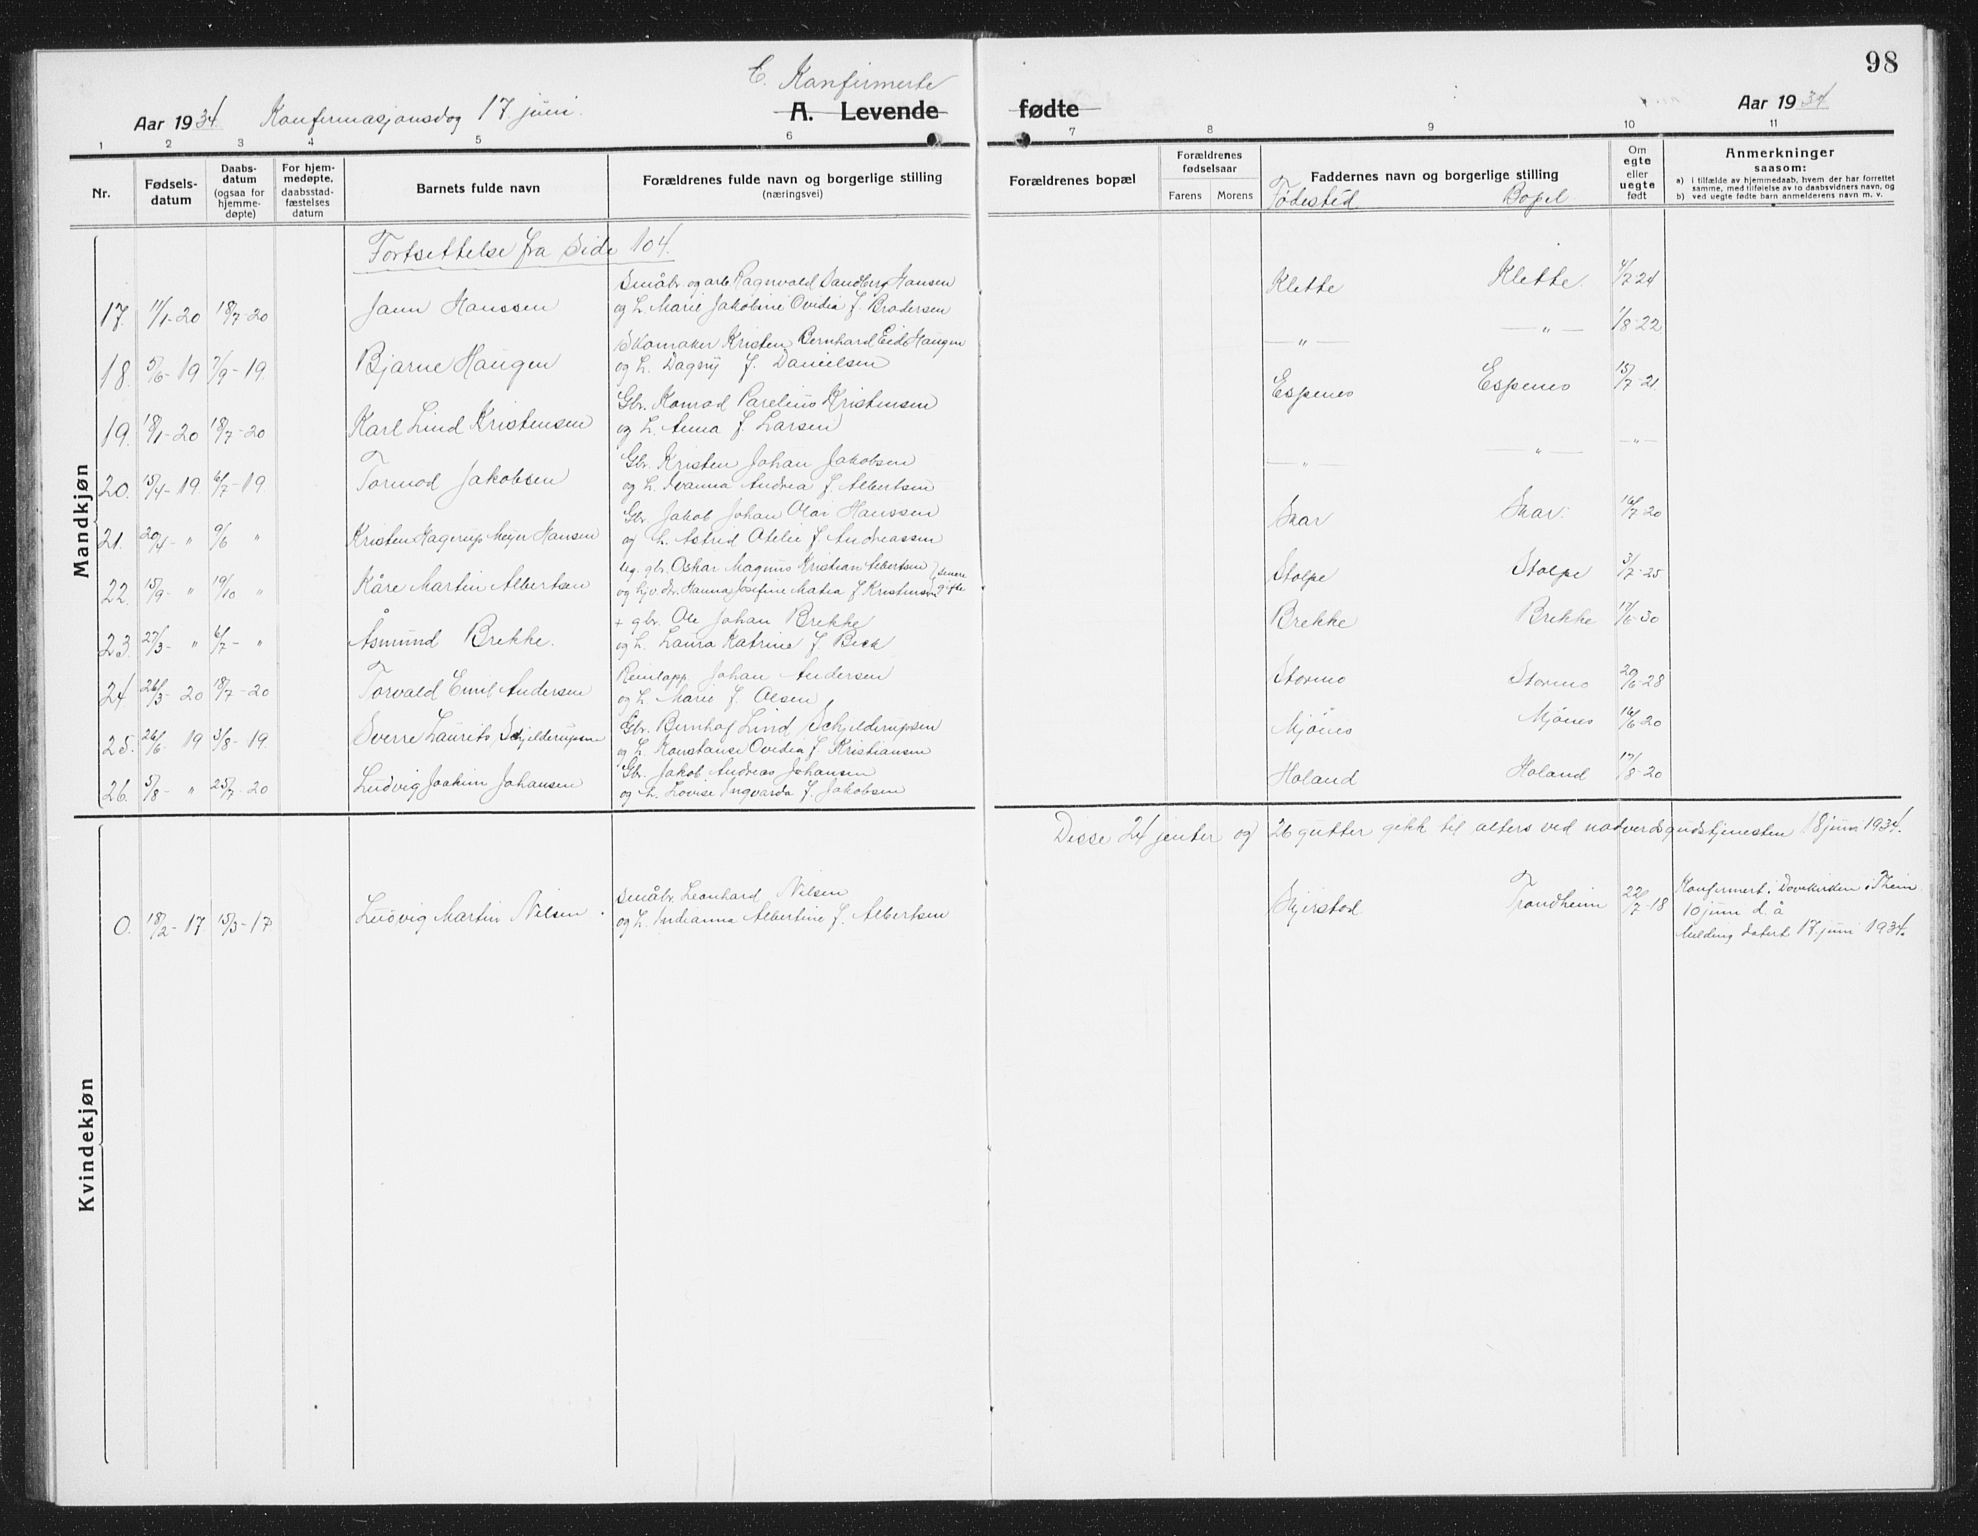 98
C. Konfirmerte
Aar 1934 Konfirmasjonsdag 17. juni. A. Levende fødte Aar 1934
1 2 3 4 5 6 7 8 9 10 11
Nr. Fødsels-datum Daabs-datum (ogsaa for hjemme-døpte) For hjem-medøpte. daabsstad-fæstelses datum Barnets fulde navn Forældrenes fulde navn og borgerlige stilling (næringsvei) Forældrenes bopæl Forældrenes fødselsaar Farens Morens Faddernes navn og borgerlige stilling Om egte eller uegte født Anmerkninger saasom:
a) i tilfælde av hjemmedaab, hvem der har forrettet samme, med tilføielse av to daabsvidners navn, og
b) ved uegte fødte barn anmelderens navn m. v.
Fødested Bopel
Mandkjøn
Fortsettelse fra side 104.
Småbr. og arb. Ragnvald Sandberg Hansen Klette Klette. 4/7-24
17. 11/1-20 18/7-20 Jann Hanssen og h. Marie Jakobine Ovidia f. Brodersen
Skomaker Kristen Bernhard Eide Haugen —"— —"— 1/8-22
18. 5/6-19 7/9-19. Bjarne Haugen og h. Dagny f. Danielsen
Gbr. Konrad Parelius Kristensen Espenes Espenes 15/7-21
19. 18/1-20 18/7-20 Karl Lind Kristensen og h. Anna f. Larsen
Gbr. Kristen Johan Jakobsen —"— —"— —"—
20. 15/4-19. 6/7-19. Tormod Jakobsen og h. Ivanna Andrea f. Albertsen
Gbr. Jakob Johan Olar Hanssen Skar Skar. 16/7-20
21. 20/4- " 9/6 " Kristen Hagerup Meyer Hansen og h. Astrid Otelie f. Andreassen
Ug. gbr. Oskar Magnus Kristian Albertsen } senere Stolpe Stolpe 3/7-25
22. 15/9- " 19/10 " Kåre Martin Albertsen og hjv. dr. Hanna Josefine Matea f Kristensen gifte
+ gbr. Ole Johan Brekke Brekke Brekke 17/6-30
23. 27/3- " 6/7- " Åsmund Brekke. og h. Laura Katrine f. Beck
Reinlapp. Johan Andersen Stormo Stormo 20/6-28
24 26/3-20 18/7-20 Torvald Emil Andersen og h. Marie f. Olsen
Gbr. Bernhof Lind Schjelderupsen Mjönes Mjönes 16/6-20
25. 26/6-19 3/8-19. Sverre Laurits Schjelderupsen og h. Konstanse Ovidia f. Kristiansen
Gbr. Jakob Andreas Johansen Holand Holand 17/8-20
26. 5/8- " 25/7-20 Ludvig Joakim Johansen og h. Lovise Ingvarda f. Jakobsen
Kvindekjøn
Disse 24 jenter og 26 gutter gikk til alters ved nadverdsgudstjenesten 18 juni 1934.
Småbr. Leonhard Nilsen Skjerstad Trondheim 22/7-18 Konfirmert i Domkirken i Theim.
0. 18/2-17. 15/3-17 Ludvig Martin Nilsen. og h. Indianna Albertine f. Albertsen 10 juni d. å
Melding datert 17. juni 1934.